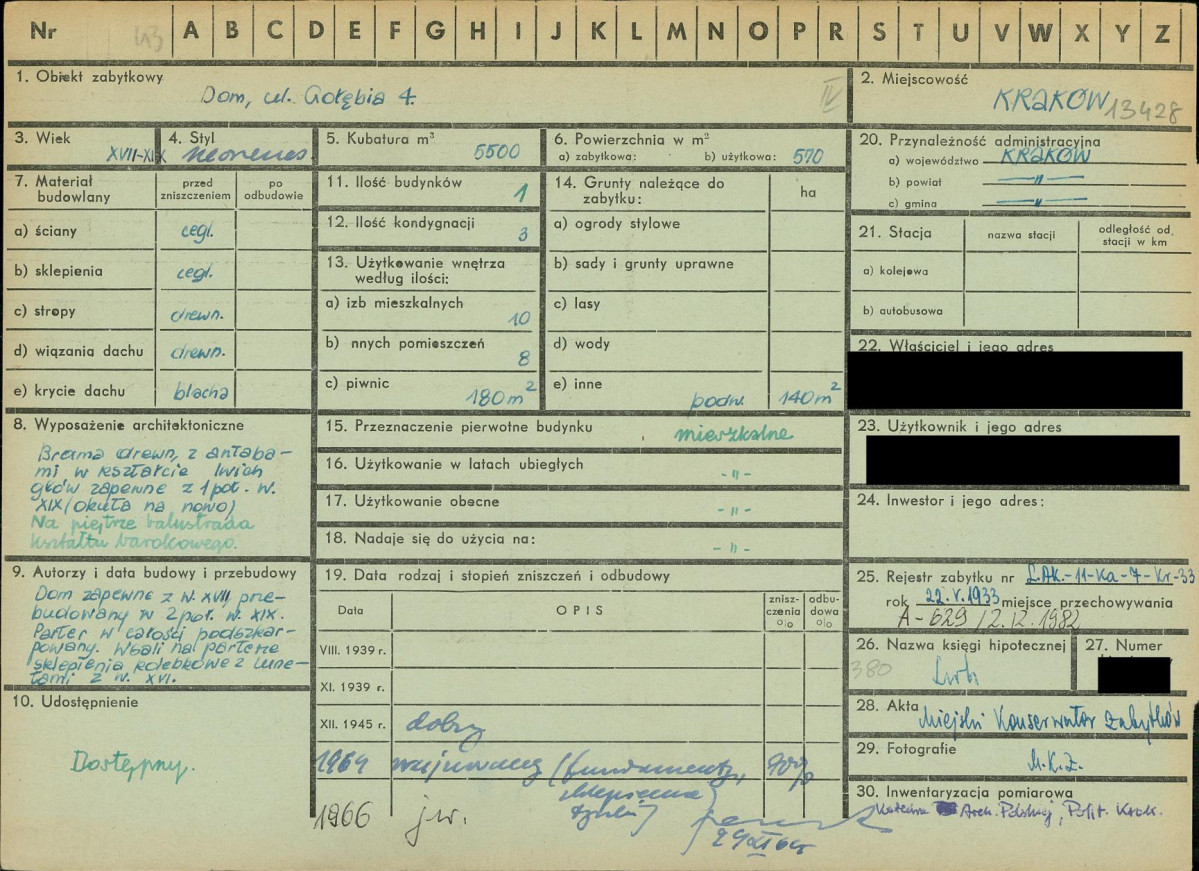 Nr 43 A B C D E F G H I J K L M N O P R S T U V W X Y Z
1. Obiekt zabytkowy
Dom, ul. Gołębia 4.
IV
2. Miejscowość
KRAKÓW 13428
3. Wiek
XVII-XIX
4. Styl
neorenes.
5. Kubatura m³
5500
6. Powierzchnia w m²
a) zabytkowa: b) użytkowa: 570
20. Przynależność administracyjna
a) województwo KRAKÓW
b) powiat —"—
c) gmina —"—
7. Materiał budowlany
przed zniszczeniem
po odbudowie
a) ściany cegl.
b) sklepienia cegl.
c) stropy drewn.
d) wiązania dachu drewn.
e) krycie dachu blacha
11. Ilość budynków 1
12. Ilość kondygnacji 3
13. Użytkowanie wnętrza
według ilości:
a) izb mieszkalnych 10
b) nnych pomieszczeń 8
c) piwnic 180 m²
14. Grunty należące do
zabytku:
ha
a) ogrody stylowe
b) sady i grunty uprawne
c) lasy
d) wody
e) inne podw. 140 m²
21. Stacja
nazwa stacji
odległość od
stacji w km
a) kolejowa
b) autobusowa
22. Właściciel i jego adres
8. Wyposażenie architektoniczne
Brama drewn. z antaba-
mi w kształcie lwich
głów zapewne z 1 poł. w.
XIX (okuta na nowo)
Na piętrze balustrada
kształtu barokowego.
15. Przeznaczenie pierwotne budynku mieszkalne
16. Użytkowanie w latach ubiegłych -"-
17. Użytkowanie obecne -"-
18. Nadaje się do użycia na: -"-
23. Użytkownik i jego adres
24. Inwestor i jego adres:
9. Autorzy i data budowy i przebudowy
Dom zapewne z w. XVII prze-
budowany w 2 poł. w. XIX.
Parter w całości podszkar-
powany. W sali na parterze
sklepienia kolebkowe z lune-
tami z w. XVI.
10. Udostępnienie
Dostępny.
19. Data rodzaj i stopień zniszczeń i odbudowy
Data
OPIS
znisz-
czenia
o|o
odbu-
dowa
o|o
VIII. 1939 r.
XI. 1939 r.
XII. 1945 r. dobry
1964 zrujnowany (fundamenty, 90%
sklepienia
1966 jw.
25. Rejestr zabytku nr L.AK.-11-Ka-7-Kr-33
rok 22.V.1933 miejsce przechowywania
A-629 / 2.12.1982
26. Nazwa księgi hipotecznej
380
27. Numer
28. Akta Miejski Konserwator Zabytków
29. Fotografie M.K.Z.
30. Inwentaryzacja pomiarowa
Katedra Arch. Polskiej, Polit. Krak.